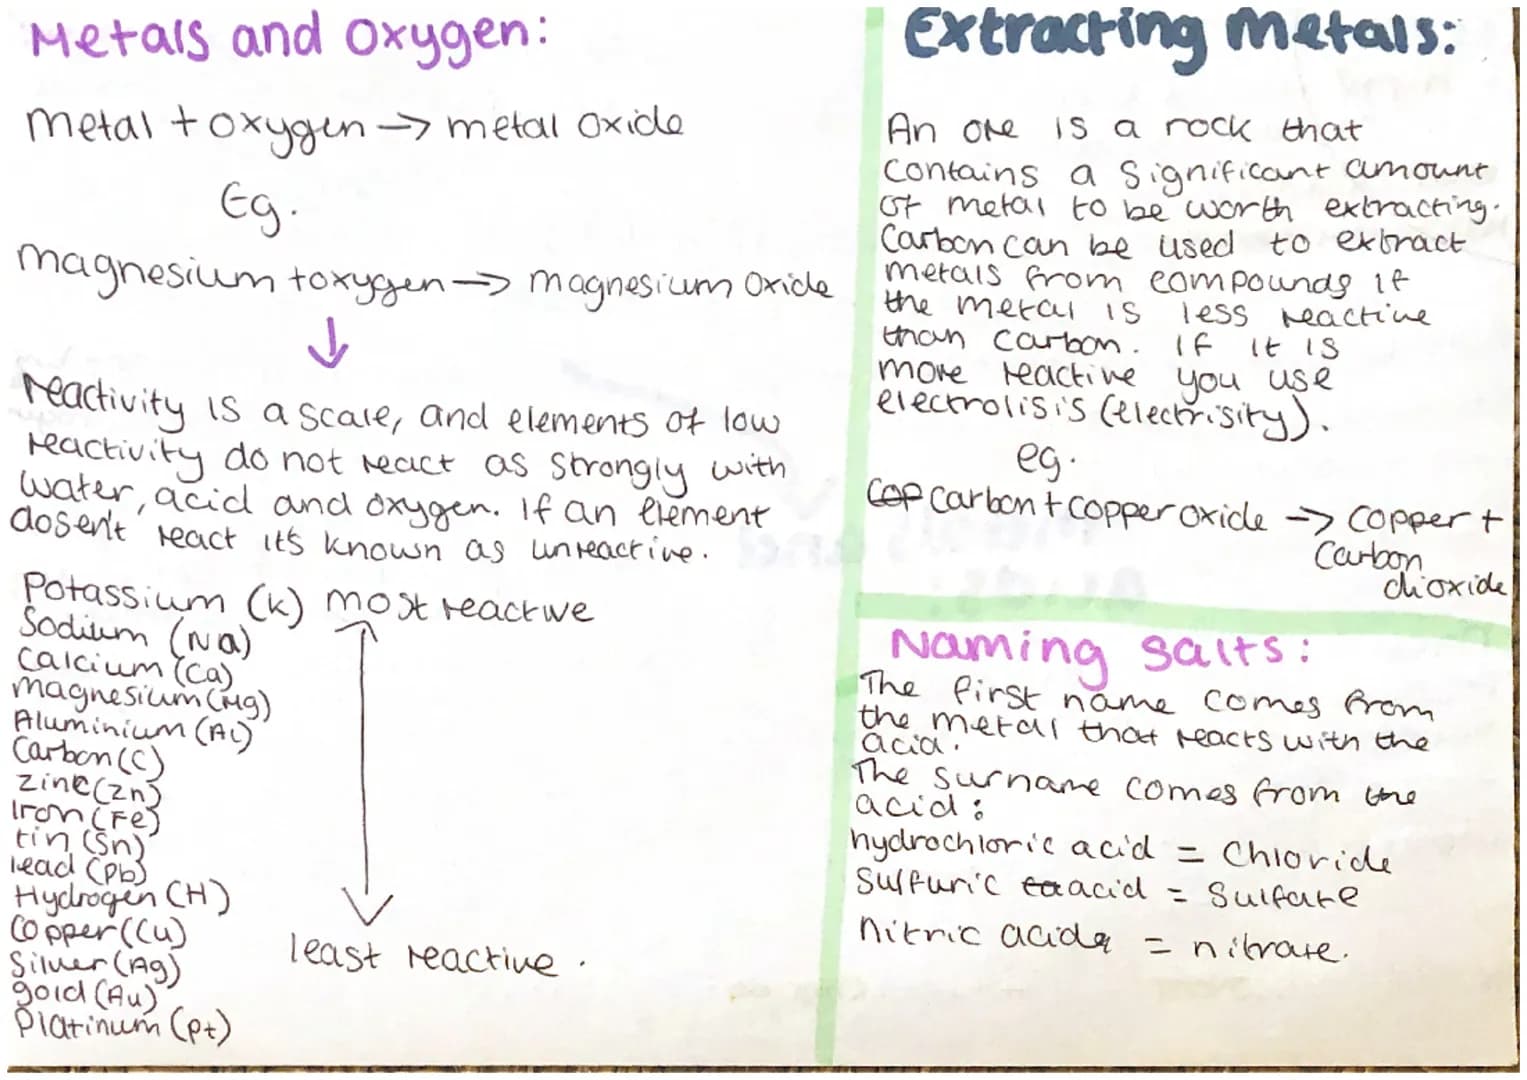 Metals and Oxygen:
metal + oxygen → metal oxide
Eg.
magnesium + oxygen → magnesium Oxide
↓
reactivity is a scale, and elements of low
reactivity do not react as strongly with
water, acid and oxygen. If an element
dosen't react it's known as unreactive.
Potassium (K) most reactive
Sodium (Na)
Calcium (Ca)
magnesium (Mg)
Aluminium (Al)
Carbon (C)
Zinc (Zn)
Iron (Fe)
tin (Sn)
lead (Pb)
Hydrogen (H)
Copper (Cu)
least reactive.
Silver (Ag)
gold (Au)
Platinum (Pt)
Extracting metals:
An ore is a rock that
contains a significant amount
of metal to be worth extracting.
Carbon can be used to extract
metals from compounds if
the metal is less reactive
than carbon. If it is
more reactive you use
electrolisis (electrisity).
eg.
cop carbon + copper oxide → copper +
Carbon
dioxide
Naming salts:
The first name comes from
the metal that reacts with the
acid.
The surname comes from the
acid:
hydrochloric acid = Chloride
Sulfuric acid = Sulfate
nitric acid = nitrate.